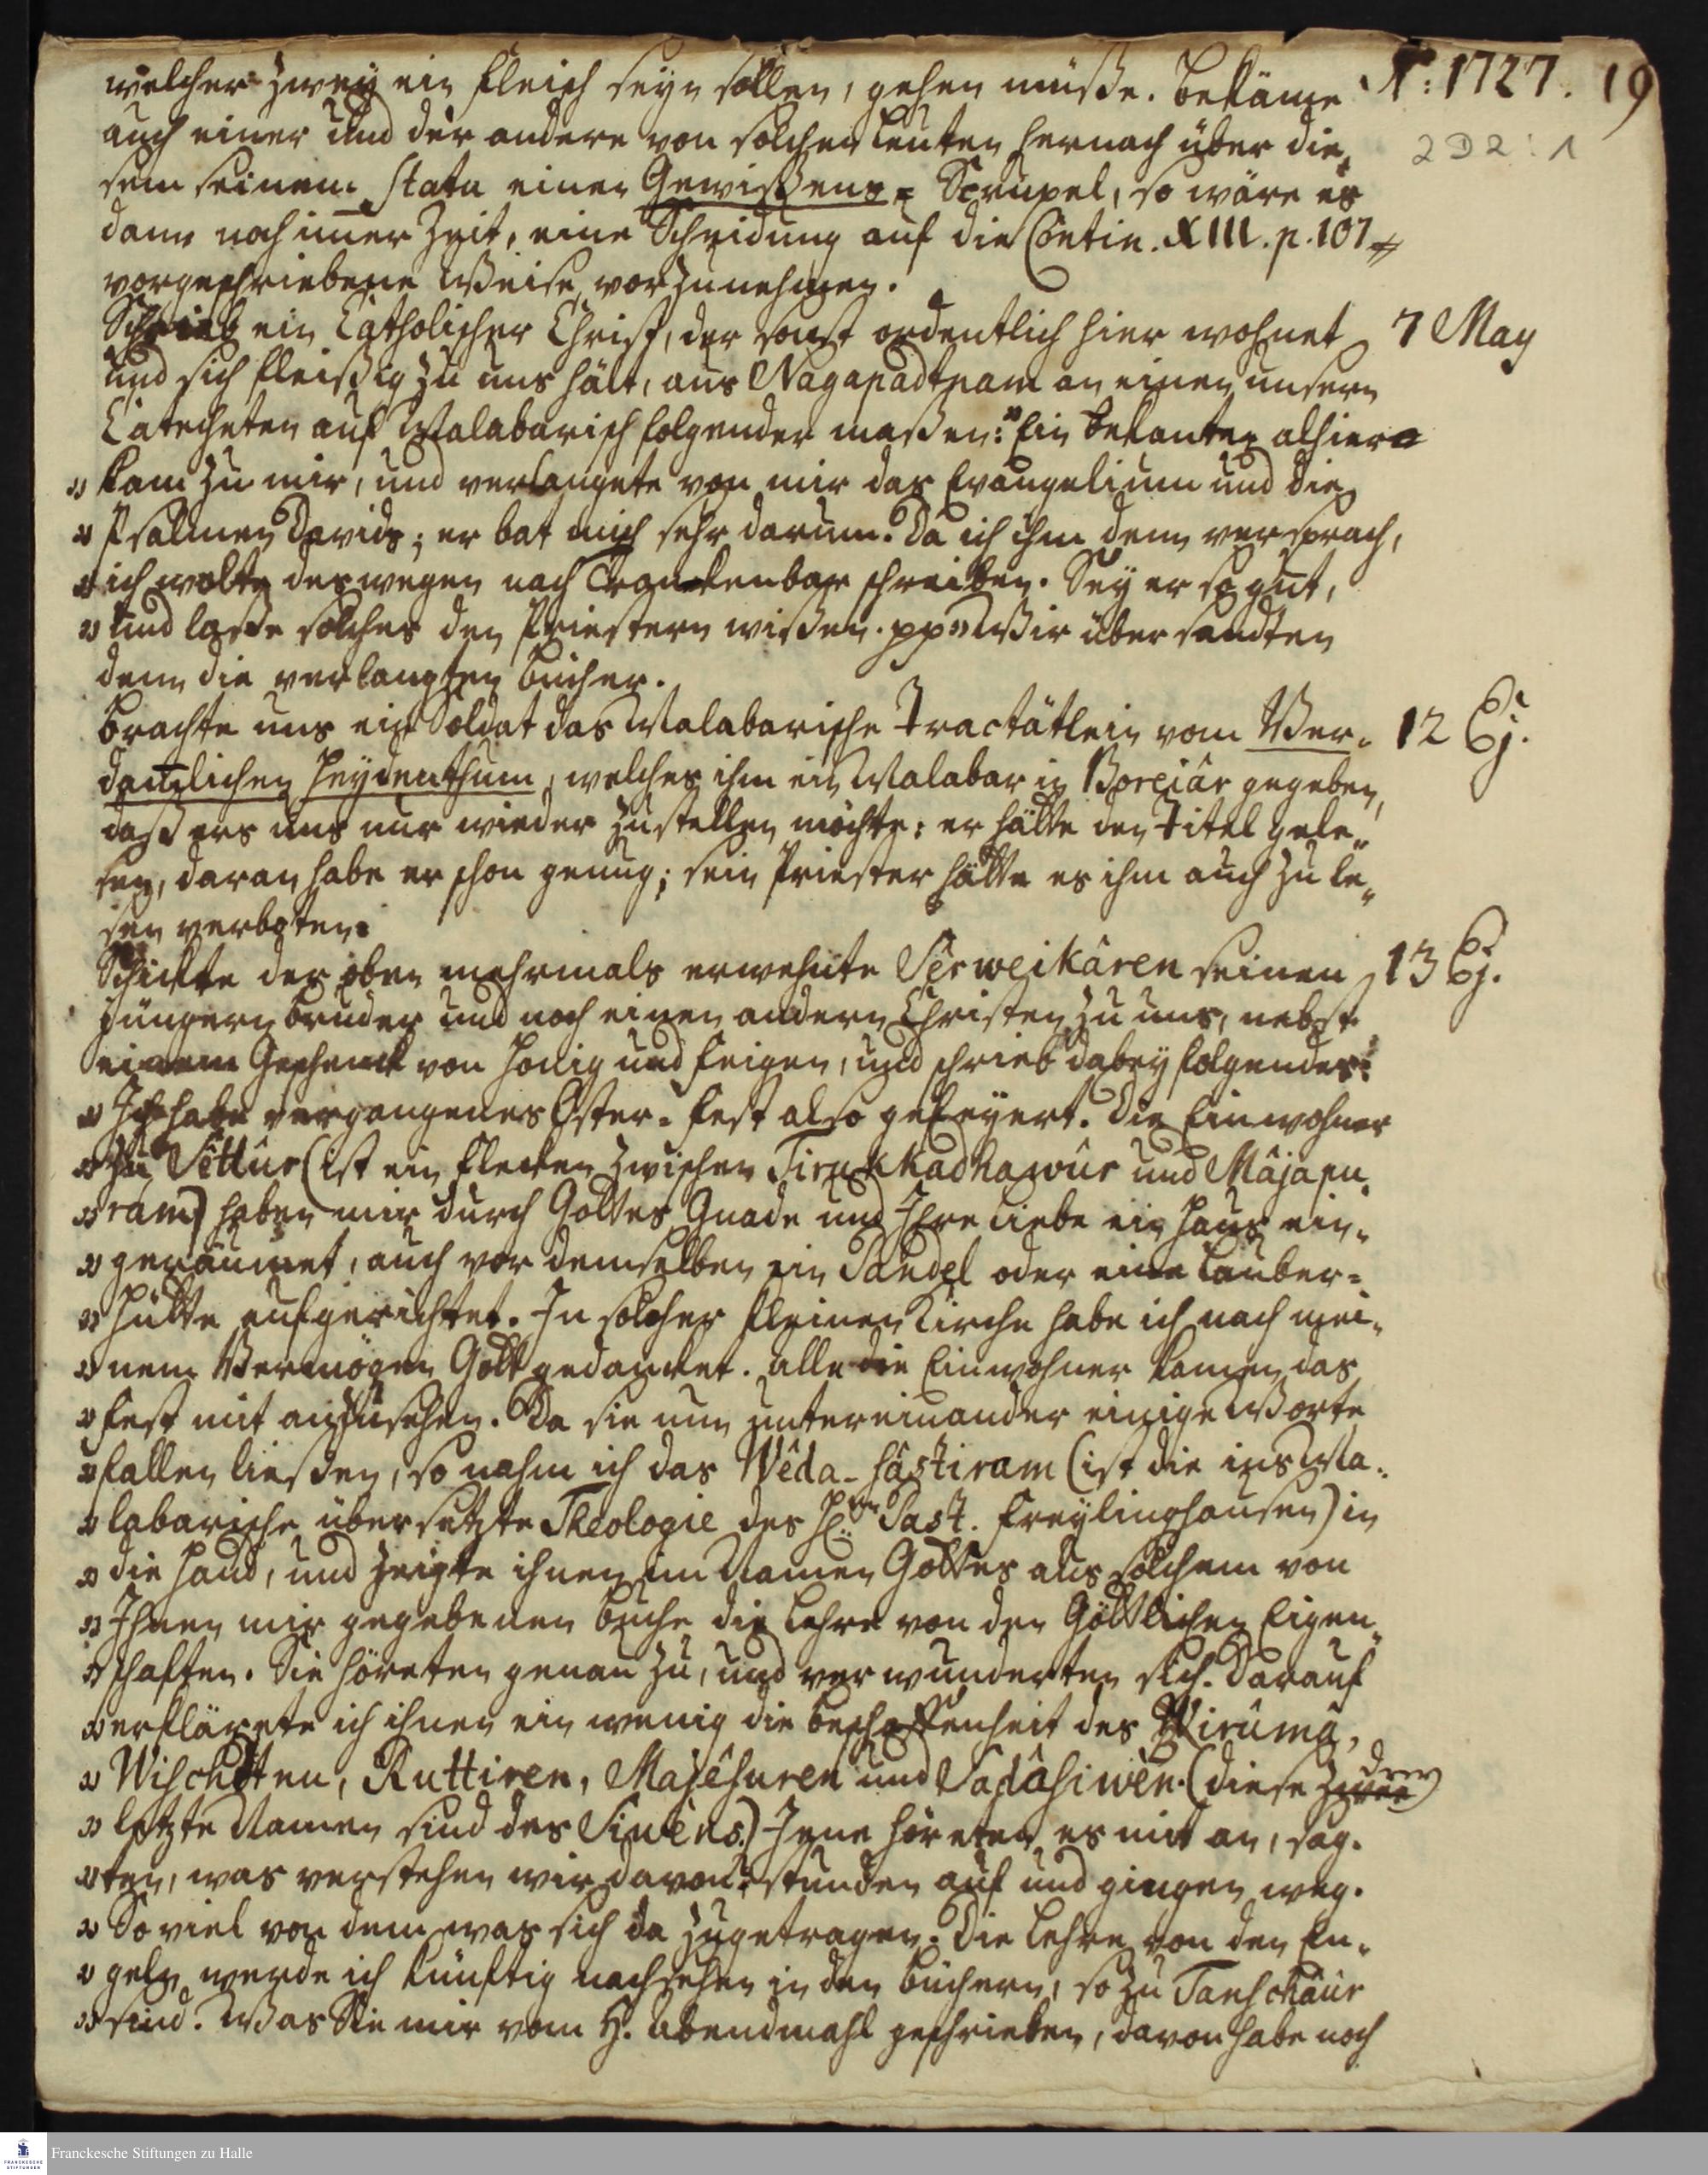 A: 1727. 19
2 D 2 : 1
welcher zwey ein Fleisch seyn sollen, gehen müße. Bekäme
auch einer und der andere von solchen Leuten hernach über die„
sem seinem Statu einen Gewißens = Scrupel, so wäre es
dann noch im̅er Zeit, eine Scheidung auf die Contin. XIII. p. 107
vorgeschriebene Weise vorzunehmen.
7 May
Schrieb ein Catholischer Christ, der sonst ordentlich hier wohnet
und sich fleißig zu uns hält, aus Nagapadtnam an einen unsern
Catecheten auf Malabarisch folgender maßen: „Ein bekanter alhier
„ kam zu mir, und verlangete von mir das Evangelium und die
„ Psalmen Davids; er bat mich sehr darum. Da ich ihm denn versprach,
„ ich wolte deswegen nach Trankenbar schreiben. Sey er so gut,
„ und laße solches den Priestern wißen. pp„ Wir übersandten
denn die verlangten Bücher.
12 Ej.
Brachte uns ein Soldat das Malabarische Tractätlein vom Ver-
dam̅lichen Heydenthum, welches ihm ein Malabar in Boreiâr gegeben,
daß ers uns nur wieder zustellen möchte: er hätte den Titel gele„
sen, daran habe er schon genug; sein Priester hätte es ihm auch zu le„
sen verboten.
13 Ej.
Schickte der oben mehrmals erwehnte Sêrweikâren seinen
jüngern Bruder und noch einen andern Christen zu uns, nebst
einem Geschenck von Honig und Feigen, und schrieb dabey folgendes:
„ Ich habe vergangenes Oster- Fest also gefeyert. Die Einwohner
„ zu Sêttûr (ist ein Flecken zwischen Tirukkadhawûr und Mâjapu„
„ ram) haben mir durch Gottes Gnade und Ihre Liebe ein Haus ein„
„ geräumet, auch vor demselben ein Pandel oder eine Lauber=
„ Hütte aufgerichtet. In solcher kleinen Kirche habe ich nach mei„
„ nem Vermögen Gott gedancket. Alle die Einwohner kamen das
„ Fest mit anzusehen. Da sie nun untereinander einige Worte
„ fallen ließen, so nahm ich das Wêda-Sâstiram (ist die ins Ma„
„ labarische übersetzte Theologie des H̅rn Past. Freylinghausen) in
„ die Hand, und zeigte ihnen im Namen Gottes aus solchem von
„ Ihnen mir gegebenen Buche die Lehre von den Göttlichen Eigen„
„ schaften. Sie höreten genau zu, und verwunderten sich. Darauf
„ erklärete ich ihnen ein wenig die Beschaffenheit des Wirumâ,
„ Wischtnu, Ruttiren, Majêsuren und Sadâsiwên. (diese drey
„ letzte Namen sind des Siwêns.) Jene höreten es mit an, sag„
„ ten, was verstehen wir davon? stunden auf und gingen weg.
„ So viel von dem was sich da zugetragen. Die Lehre von den En„
„ geln werde ich künftig nachsehen in den Büchern, so zu Tanschaûr
„ sind. Was Sie mir vom H. Abendmahl geschrieben, davon habe noch
Franckesche Stiftungen zu Halle
FRANCKESCHE
STIFTUNGEN